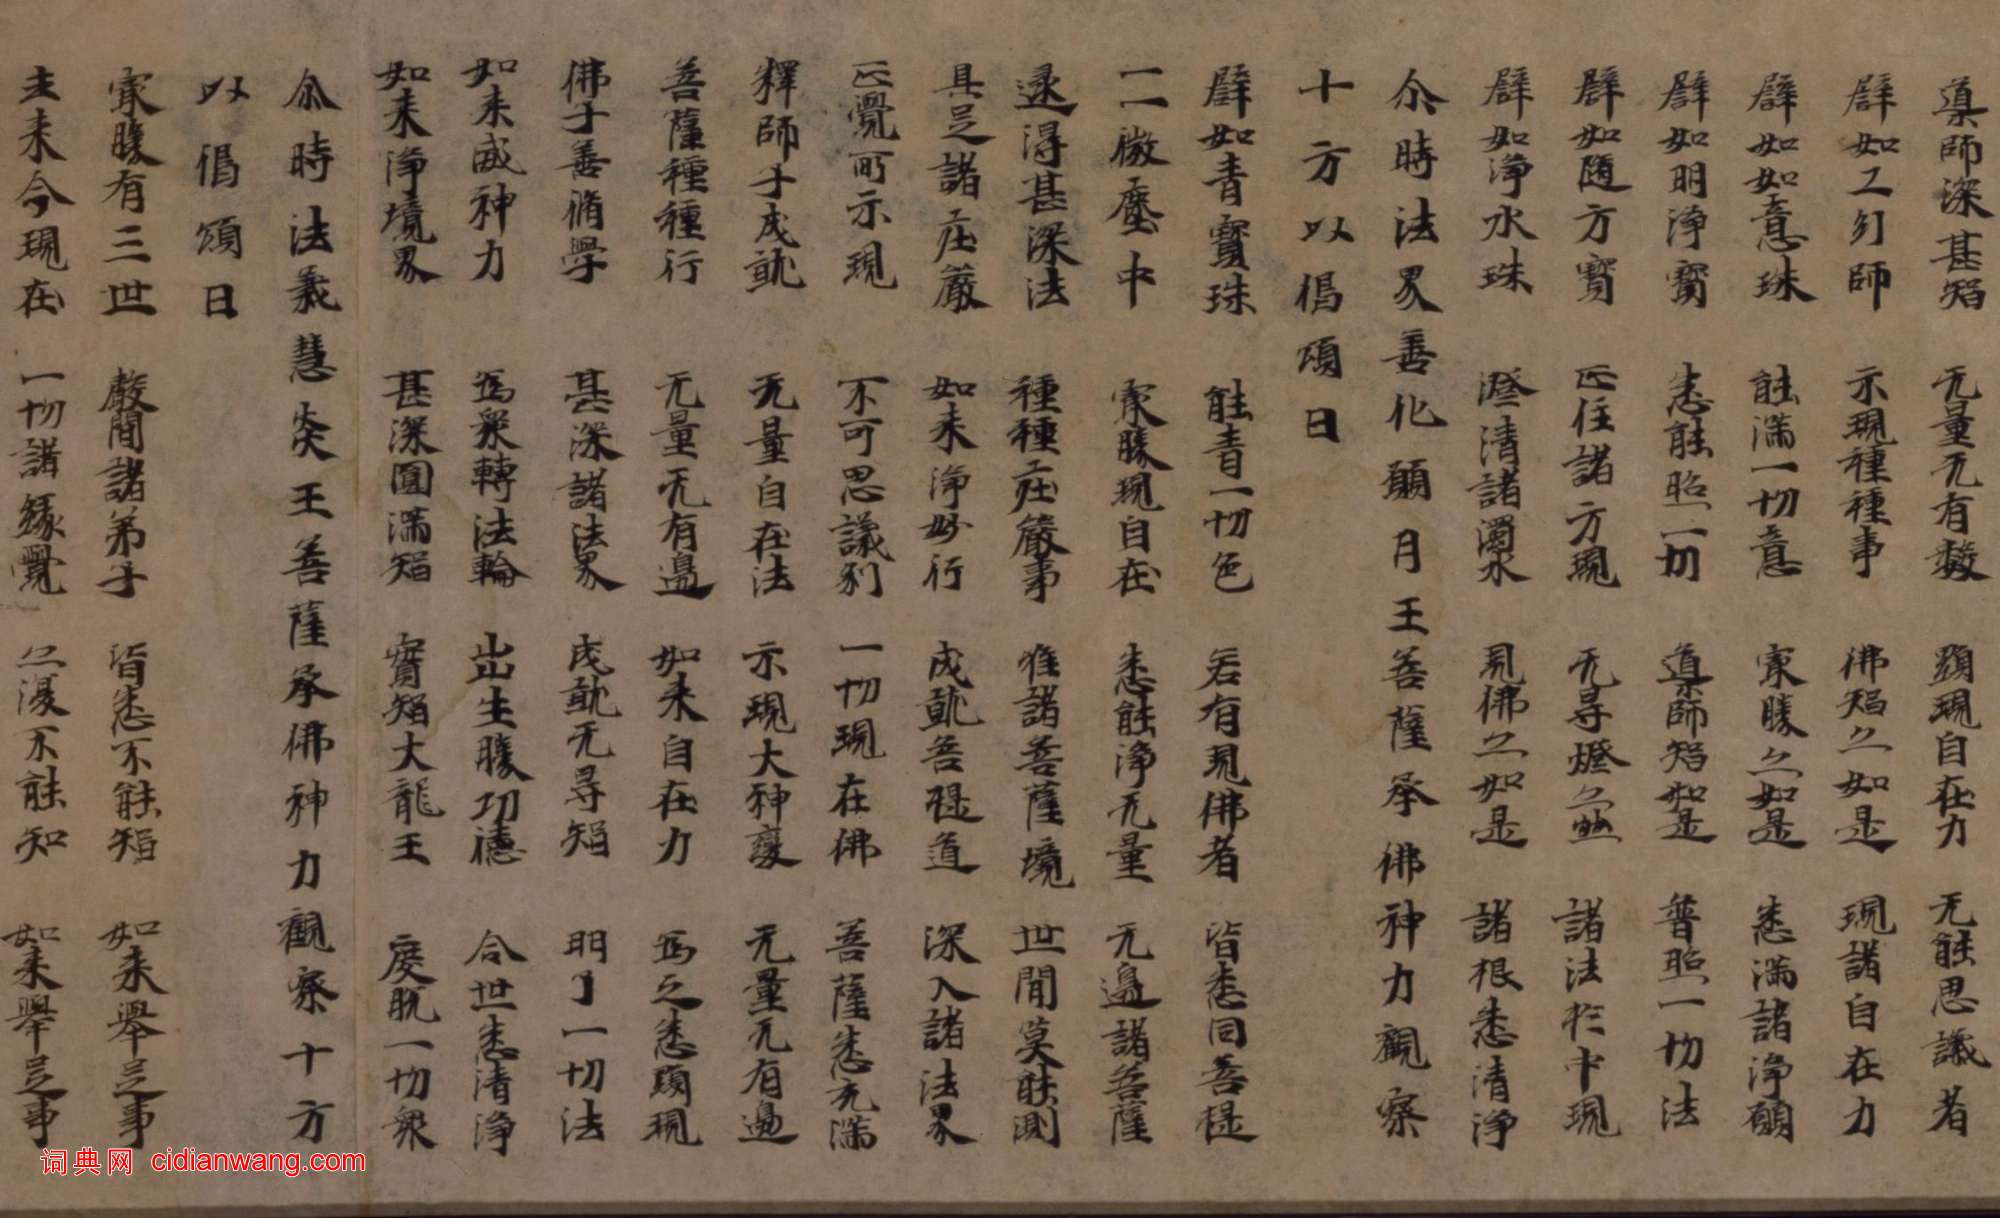 導師深甚智 无量无有數 顯現自在力 无能思議者
譬如工幻師 示現種種事 佛智亦如是 現諸自在力
譬如如意珠 能滿一切意 寂勝亦如是 悉滿諸淨願
譬如明淨寶 悉能照一切 導師智如是 普照一切法
譬如隨方寶 正住諸方現 无㝵燈亦然 諸法於中現
譬如淨水珠 澄清諸濁水 見佛亦如是 諸根悉清淨
尒時法界善化願月王菩薩承佛神力觀察
十方以偈頌曰
譬如青寶珠 能青一切色 若有現佛者 皆悉同菩提
一一微塵中 寂勝現自在 悉能淨无量 无邊諸菩薩
逮得甚深法 種種庄嚴事 唯諸菩薩境 世間莫能測
具足諸庄嚴 如来淨妙行 成就菩提道 深入諸法界
正覺所示現 不可思議刹 一切現在佛 菩薩悉充滿
釋師子成就 无量自在法 示現大神變 无量无有邊
菩薩種種行 无量无有邊 如来自在力 為之悉顯現
佛子善脩學 甚深諸法界 成就无㝵智 明了一切法
如来威神力 為衆轉法輪 出生勝功德 令世悉清淨
如来淨境界 甚深圓滿智 實智大龍王 度脫一切衆
尒時法義慧炎王菩薩承佛神力觀察十方
以偈頌曰
寂勝有三世 嚴間諸弟子 皆悉不能智 如来舉足事
去来今現在 一切諸緣覺 亦復不能知 如来舉足事
词典网 cidianwang.com